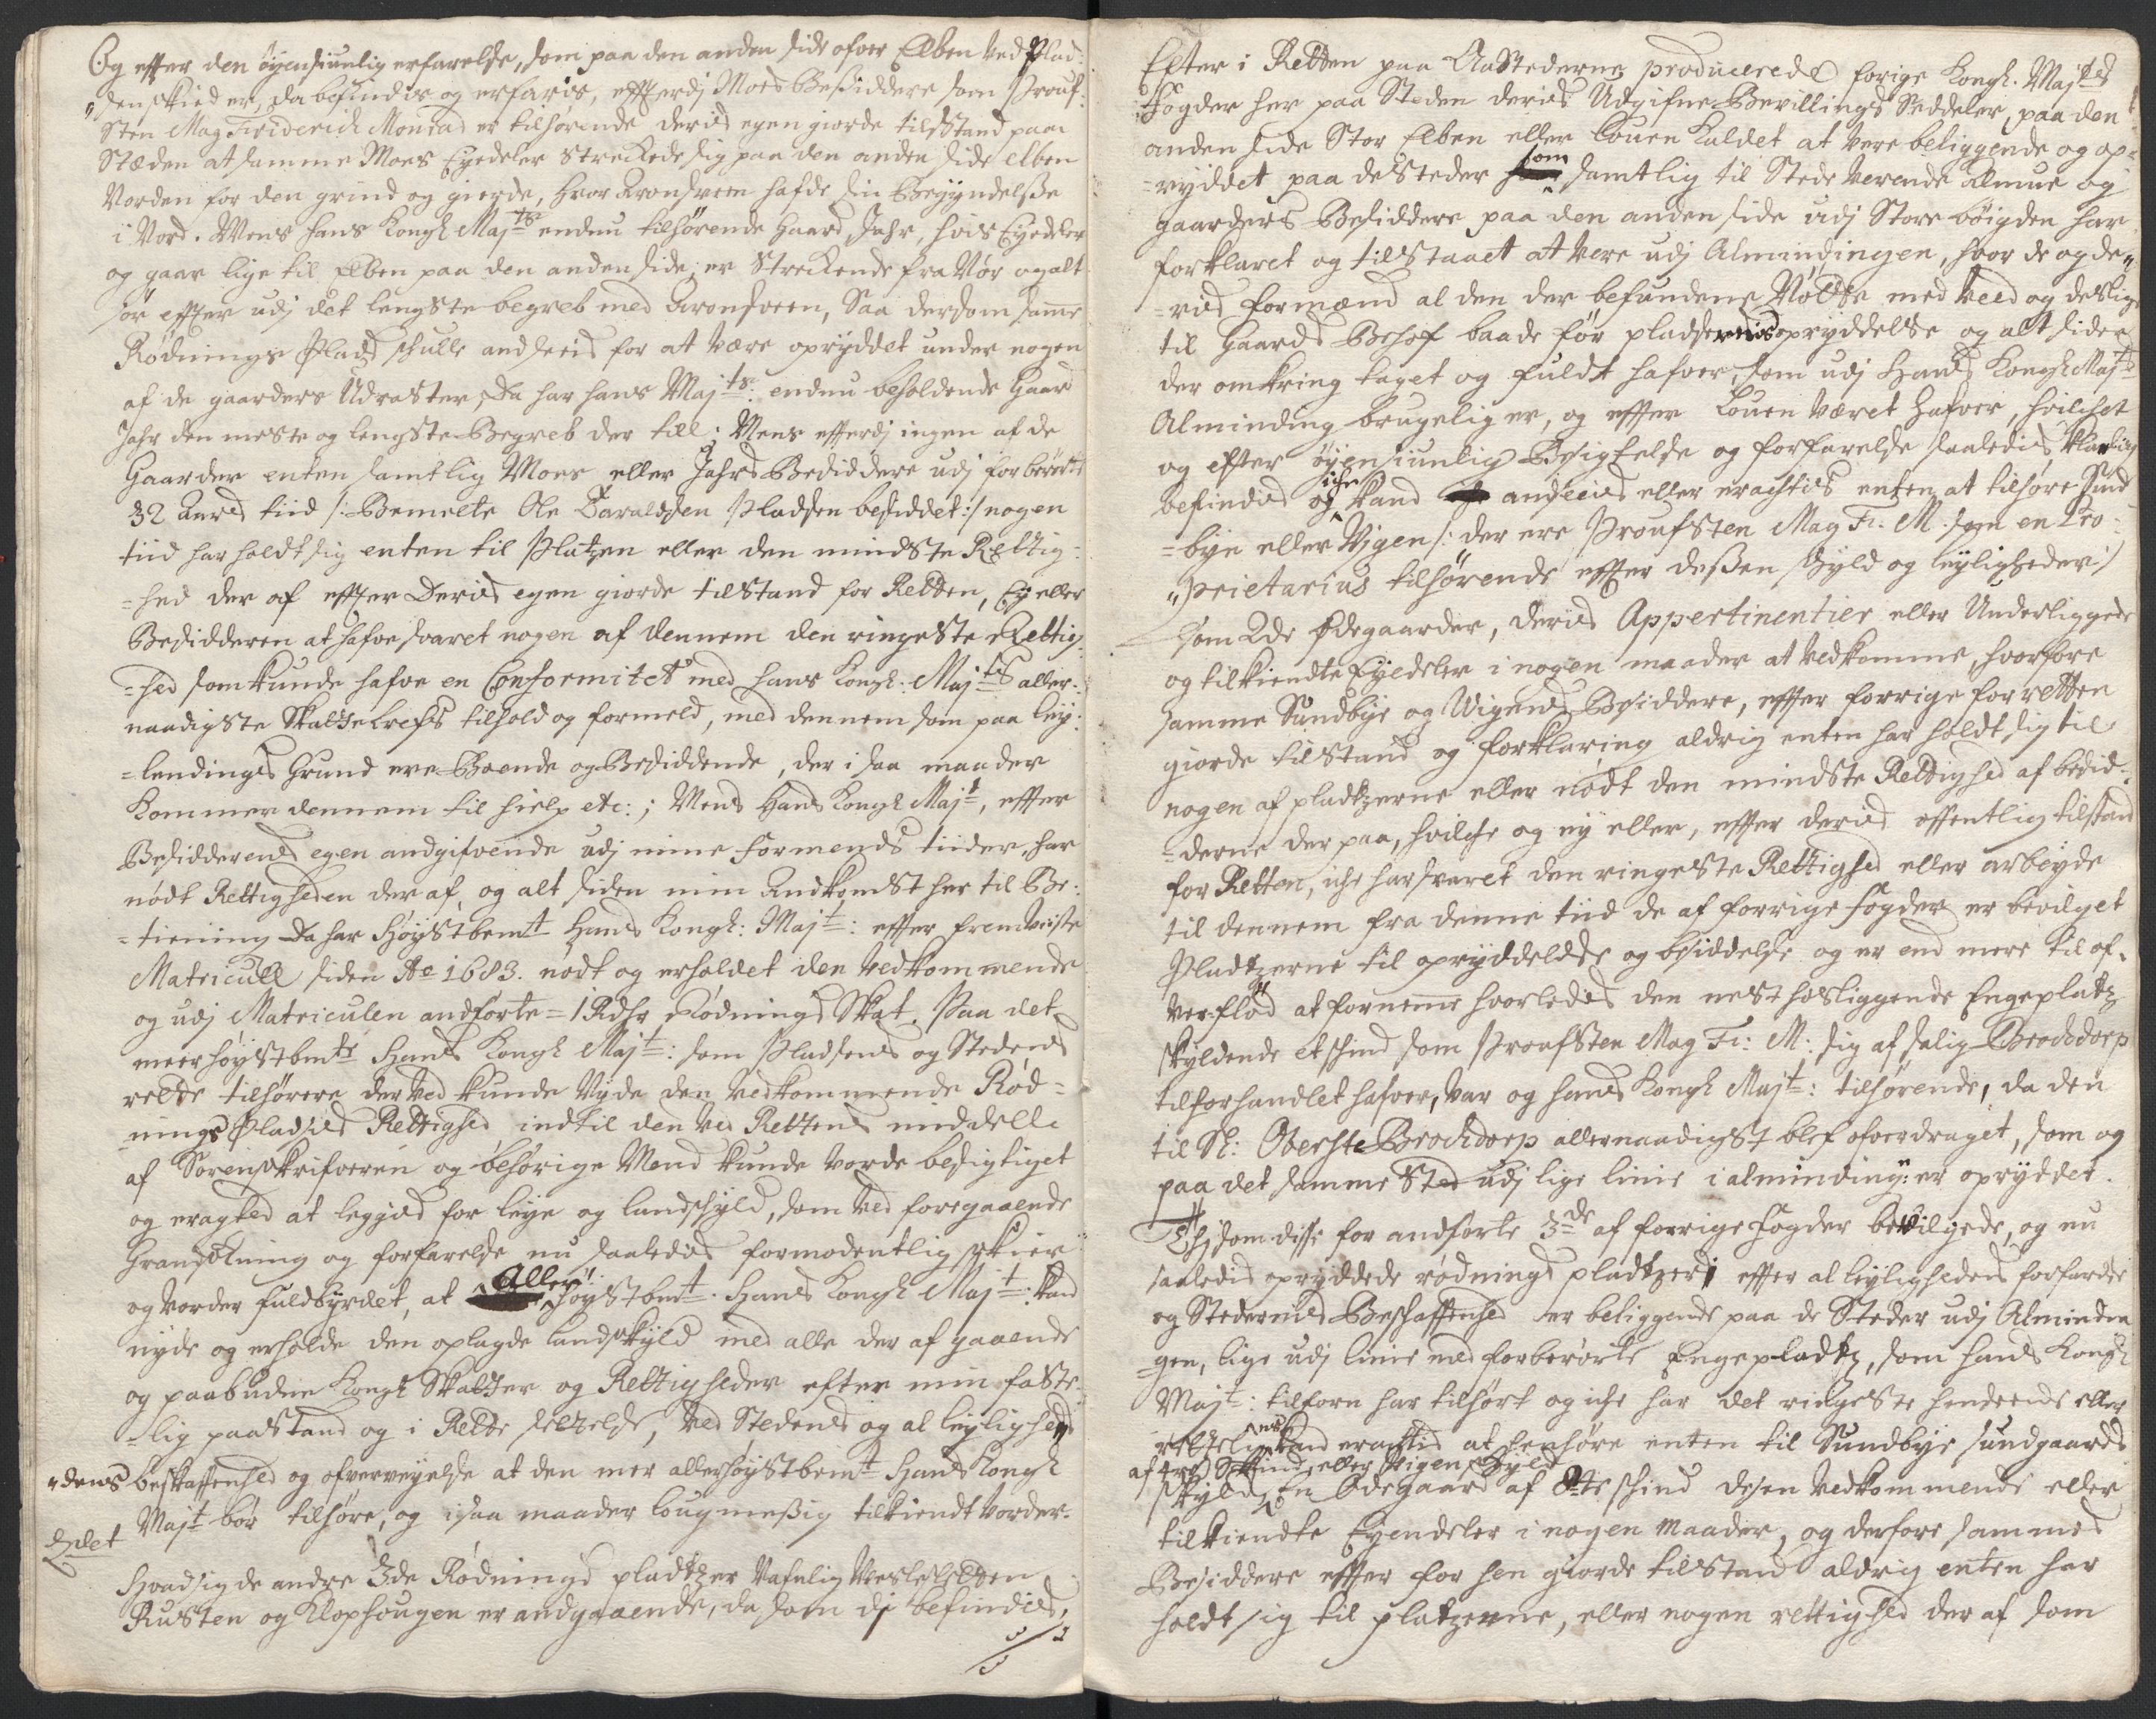 Og effter den øyensiunlig erfarelse, som paa den anden side ofver Elben ved Plad-
„sen skied er, da befindis og erfaris, efterdj Moes Besiddere som Prouf-
sten Mag Friderich Monrad er tilhørende deris egen giorde tilstand paa
Stæden at samme Moes Eyedeler streckede sig paa den anden side elben
Norden for den grind og gierde, hvor Aronsveen hafde sin Begyndelsse
i Nord. Mens hans Kongl Majts endnu tilhørende Gaard Jahr, hvis Eyedeler
og gaar lige til Elben paa den anden side, er Streckende fra Nør og alt
sør effter udj det lengste begreb med Aronsveen, Saa dersom samme
Rødnings Plads skulle andseeis for at være opryddet under nogen
af de gaarders Udraster, Da har hans Majts. endnu beholdende Gaard
Jahr den meste og lengste Begreb der till; Mens efterdj ingen af de
Gaarder enten samtlig Moes eller Jahrs Besiddere udj forberørte
32 Aars tiid /: Bemelte Ole Haraldsen Pladsen besiddet :/ nogen
tiid har holdt sig enten til Platzen eller den mindste Rettig-
=hed der af effter Deris egen giorde tilstand for Retten, Ey eller
Besidderen at hafve svaret nogen af dennem den ringeste Rettig-
=hed som kunde hafve en Conformitet med hans Kongl: Majts aller-
naadigste Skatte brefs tilhold og formeld, med dennem som paa ley-
=lendings Grund ere Boende og Besiddende, der i saa maader
kommer dennem til hielp etc:; Mens Hans Kongl Majt, effter
Besidderens egen andgifvende udj mine Formends tiider, har
nødt Rettigheden der af, og alt siden min Andkomst her til Be-
=tiening Da har Høystbemt Hans Kongl: Majt: effter fremviiste
Matricull siden Ao 1683. nødt og erholdet den vedkommende
og udj Matriculen andførte = 1 Rdr Rødnings Skat. Paa det
meer høystbemte Hans Kongl Majt: som Pladsens og Stedens
rette tilhørere der ved kunde Nyde den vedkommende Rød-
nings Pladsis Rettighed indtil den ved Rettens middell
af Sorenskrifveren og behørige Mend kunde vorde besigtiget
og eragted at leggis for leye og landskyld, som ved foregaaende
Grandskning og forfarelse nu saaledis formodentlig skier
og vorder fuldbyrdet, at Aller høystbemt. Hans Kongl Majt: kand
nyde og erholde den oplagde Landskyld med alle der af gaaende
og paabudne Kongl Skatter og Rettigheder effter min faste-
=lig paastand og i Rette settelse, ved Stedens og al leylighed
„dens beskaffenhed og ofverveyelse at den mer allerhøystbemt Hans Kongl
Majt bør tilhøre, og i saa maader lougmeßig tilkiendt vorder.
Hvad sig de andre 3de Rødnings pladtzer Nafnlig Vesletetten
Rusten og Klophougen er andgaaende, da som de befindis,
Efter i Retten paa Aastederne producerede forige Kongl. Majts
Fogder her paa Steden deris Udgifne Bevillings Seddeler, paa den
anden side Stor Elben eller Louen Kaldet at vere beliggende og op-
=ryddet paa de steder som samtlig til Stede verende Almue og
gaarders Besiddere paa den anden side udj Store bøigden har
forklaret og tilstaaet at vere udj Almindingen, hvor de og de„
=ris formænd al den der befundene Nødte med Veed og deslige
til Gaards Behof baade før pladsernis opryddelse og alt siden
der omkring taget og fuldt hafver, som udj Hans Kongl Majts
Alminding brugelig er, og effter Louen været hafver, hvilchet
og efter øyensiunlig Besigtelse og forfarelse saaledis klarlig
befindis og iche kand andseeis eller eragtis enten at tilhøre Sund
=bye eller Vigen /: der ere Proufsten Mag Fr. M. som en Pro-
„prietarius tilhørende effter deßen skyld og leyligheder :/
som 2de Ødegaarder, deris Appertinentier eller Underliggende
og tilkiendte Eyedeler i nogen maader at vedkomme, hvorfore
samme Sundbye og Wigens Besiddere, effter forrige for retten
giorde tilstand og forklaring aldrig enten har holdt sig til
nogen af pladtzerne eller nødt den mindste Rettighed af besid-
=derne der paa, hvilche og ey eller, effter deris offentlig tilstand
for Retten, iche har svaret den ringeste Rettighed eller arbeyde
til dennem fra denne tiid de af forrige Fogder er bevilget
Pladtzerne til opryddelse og besiddelse og er end mere til of-
verflød at fornemme hvorledis den nest hosliggende Engeplatz
skyldende et schind som Proufsten Mag Fr: M: sig af salig Brochdorp
tilforhandlet hafver, var og hans Kongl Majt: tilhørende, da den
til Sl: Oberste Brochdorp allernaadigst blef ofverdraget, som og
paa det samme sted udj lige linie i alminding: er opryddet.
Thj som disse for andførte 3de af forrige Fogder bevilgede, og nu
saaledis opryddede rødnings pladtzer effter al leylighedens forfarelse
og Stedernis Beschaffenhed er beliggende paa de Steder udj Alminden
=gen, lige udj linie med forberørte Engepladtz, som hans Kongl
Majt: tilforn har tilhørt og iche har det ringeste henseende eller
rettelig nu kand eractis at henhøre enten til Sundbye sundgaards
af tre Schind, eller Vigen skyld
skyld, En Ødegaard af Otte schind desen vedkommende eller
tilkiendte Eyendeler i nogen Maader, og derfore sammes
Besiddere effter for hen giorde tilstand aldrig enten har
holdt sig til platzerne, eller nogen rettighed der af som